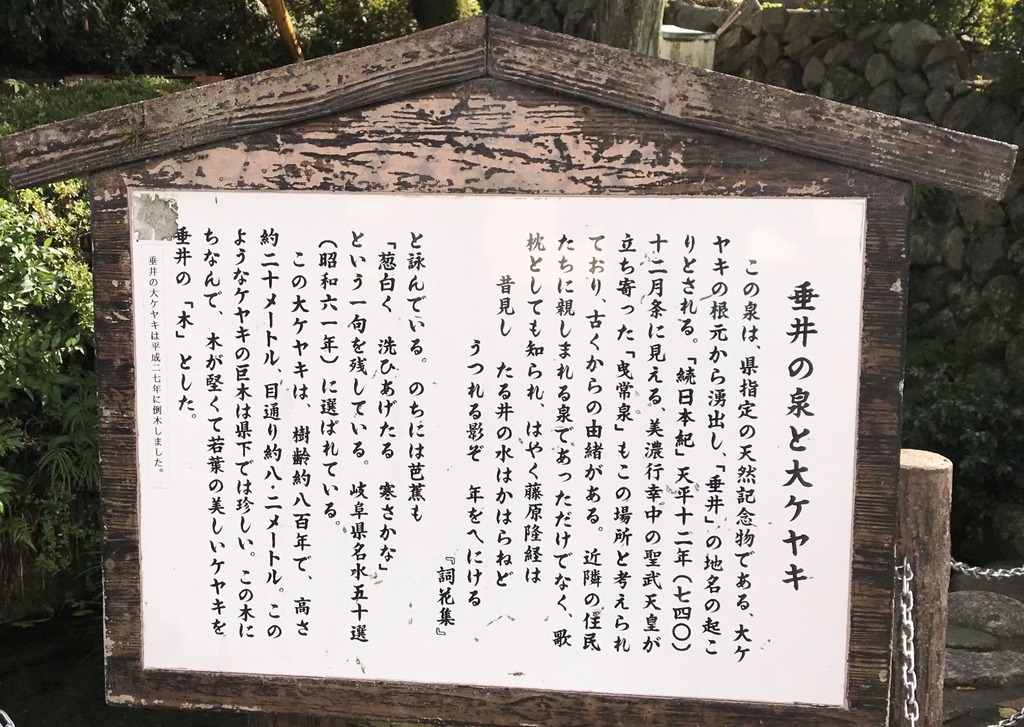 垂井の泉と大ケヤキ
この泉は、県指定の天然記念物である、大ケ
ヤキの根元から湧出し、「垂井」の地名の起こ
りとされる。「続日本紀」天平十二年（七四〇）
十二月条に見える、美濃行幸中の聖武天皇が
立ち寄った「曳常泉」もこの場所と考えられ
ており、古くからの由緒がある。近隣の住民
たちに親しまれる泉であっただけでなく、歌
枕としても知られ、はやく藤原隆経は
昔見し　たる井の水はかはらねど
うつれる影ぞ　年をへにける
『詞花集』
と詠んでいる。のちには芭蕉も
「葱白く　洗ひあげたる　寒さかな」
という一句を残している。岐阜県名水五十選
（昭和六一年）に選ばれている。
この大ケヤキは、樹齢約八百年で、高さ
約二十メートル、目通り約八・二メートル。この
ようなケヤキの巨木は県下では珍しい。この木に
ちなんで、木が堅くて若葉の美しいケヤキを
垂井の「木」とした。
垂井の大ケヤキは平成二七年に倒木しました。